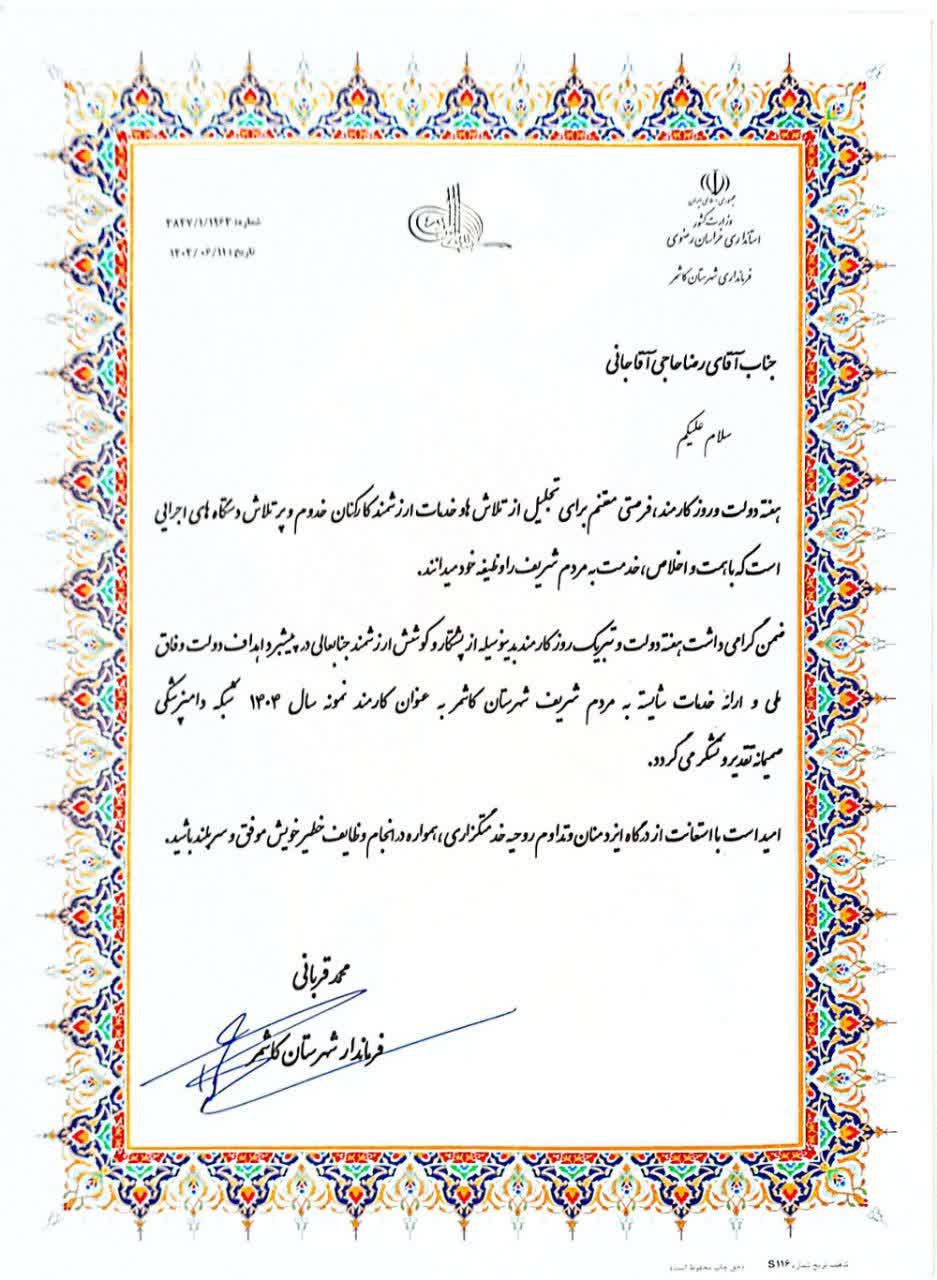 جمهوری اسلامی ایران
وزارت کشور
استانداری خراسان رضوی
فرمانداری شهرستان کاشمر
شماره: ۳۸۴۷/۱/۱۹۶۳
تاریخ: ۱۴۰۴/۰۶/۱۱
جناب آقای رضا حاجی آقاجانی
سلام علیکم
هفته دولت و روز کارمند، فرصتی مغتنم برای تجلیل از تلاش ها و خدمات ارزشمند کارکنان خدوم و پر تلاش دستگاه های اجرایی
است که با همت و اخلاص، خدمت به مردم شریف را وظیفه خود میدانند.
ضمن گرامی داشت هفته دولت و تبریک روز کارمند بدینوسیله از پشتکار و کوشش ارزشمند جنابعالی در پیشبرد اهداف دولت وفاق
ملی و ارائه خدمات شایسته به مردم شریف شهرستان کاشمر به عنوان کارمند نمونه سال ۱۴۰۴ شبکه دامپزشکی
صمیمانه تقدیر و تشکر می گردد.
امید است با استعانت از درگاه ایزد منان و تداوم روحیه خدمتگزاری، همواره در انجام وظایف خطیر خویش موفق و سربلند باشید.
محمد قربانی
فرماندار شهرستان کاشمر
S۱۱۶
(حق چاپ محفوظ است)